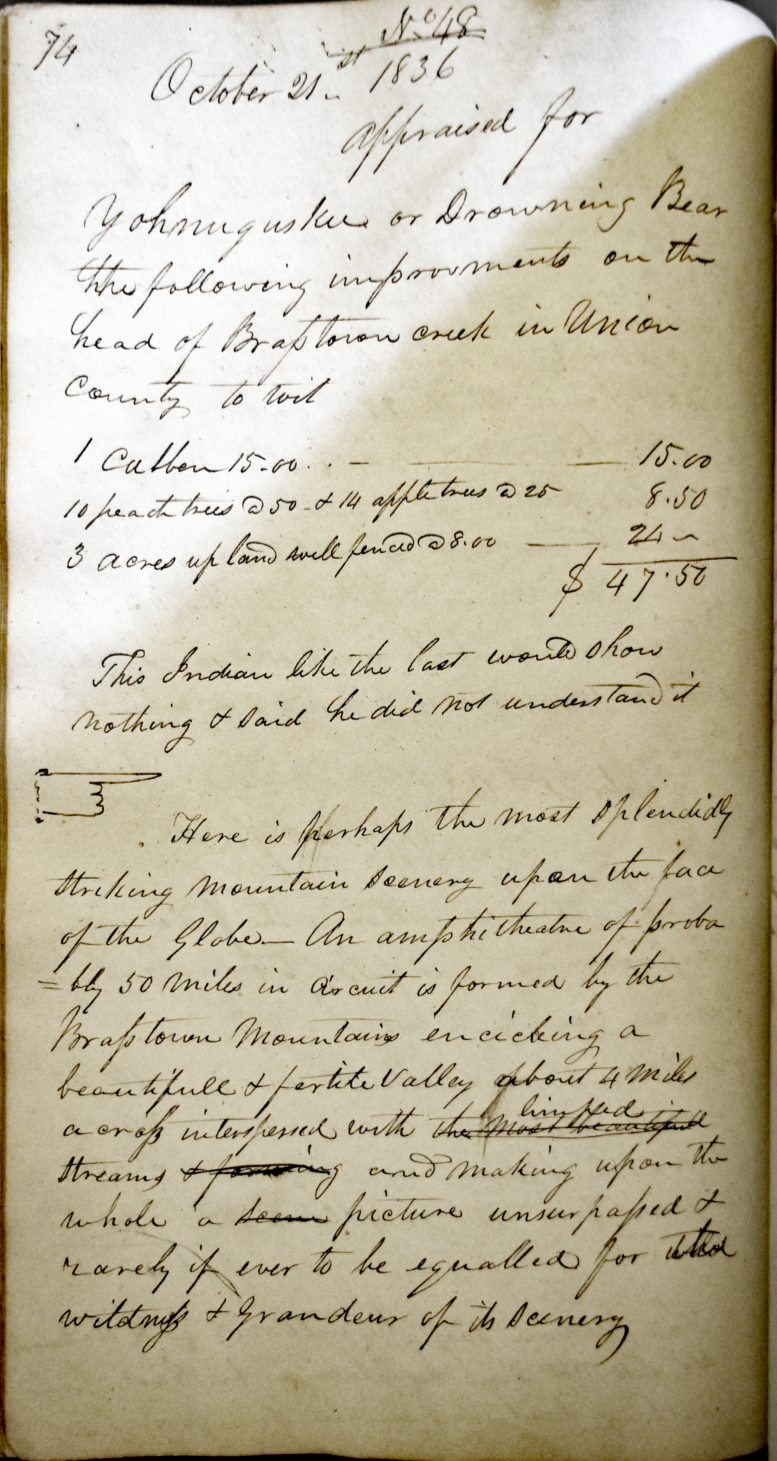 74
No 48
October 21st 1836
appraised for
Yohnuguskee or Drowning Bear
the following improvments on the
head of Braſstown creek in Union
County to wit
1 Cabben 15.00 15.00
10 peach trees @ 50 & 14 apple trees @ 25 8.50
3 acres up land well fenced @ 8.00 24 "
$ 47.50
This Indian like the last would show
nothing & said he did not understand it
Here is perhaps the most splendidly
striking mountain scenery upon the face
of the Globe — An amphitheatre of proba
=bly 50 miles in circuit is formed by the
Braſstown Mountains encicling a
beautifull & fertile Valley about 4 miles
limped
acroſs interspersed with the most beautifull
streams & forming and making upon the
whole a scene picture unsurpaſsed &
rarely if ever to be equalled for
wildneſs & Grandeur of its scenery